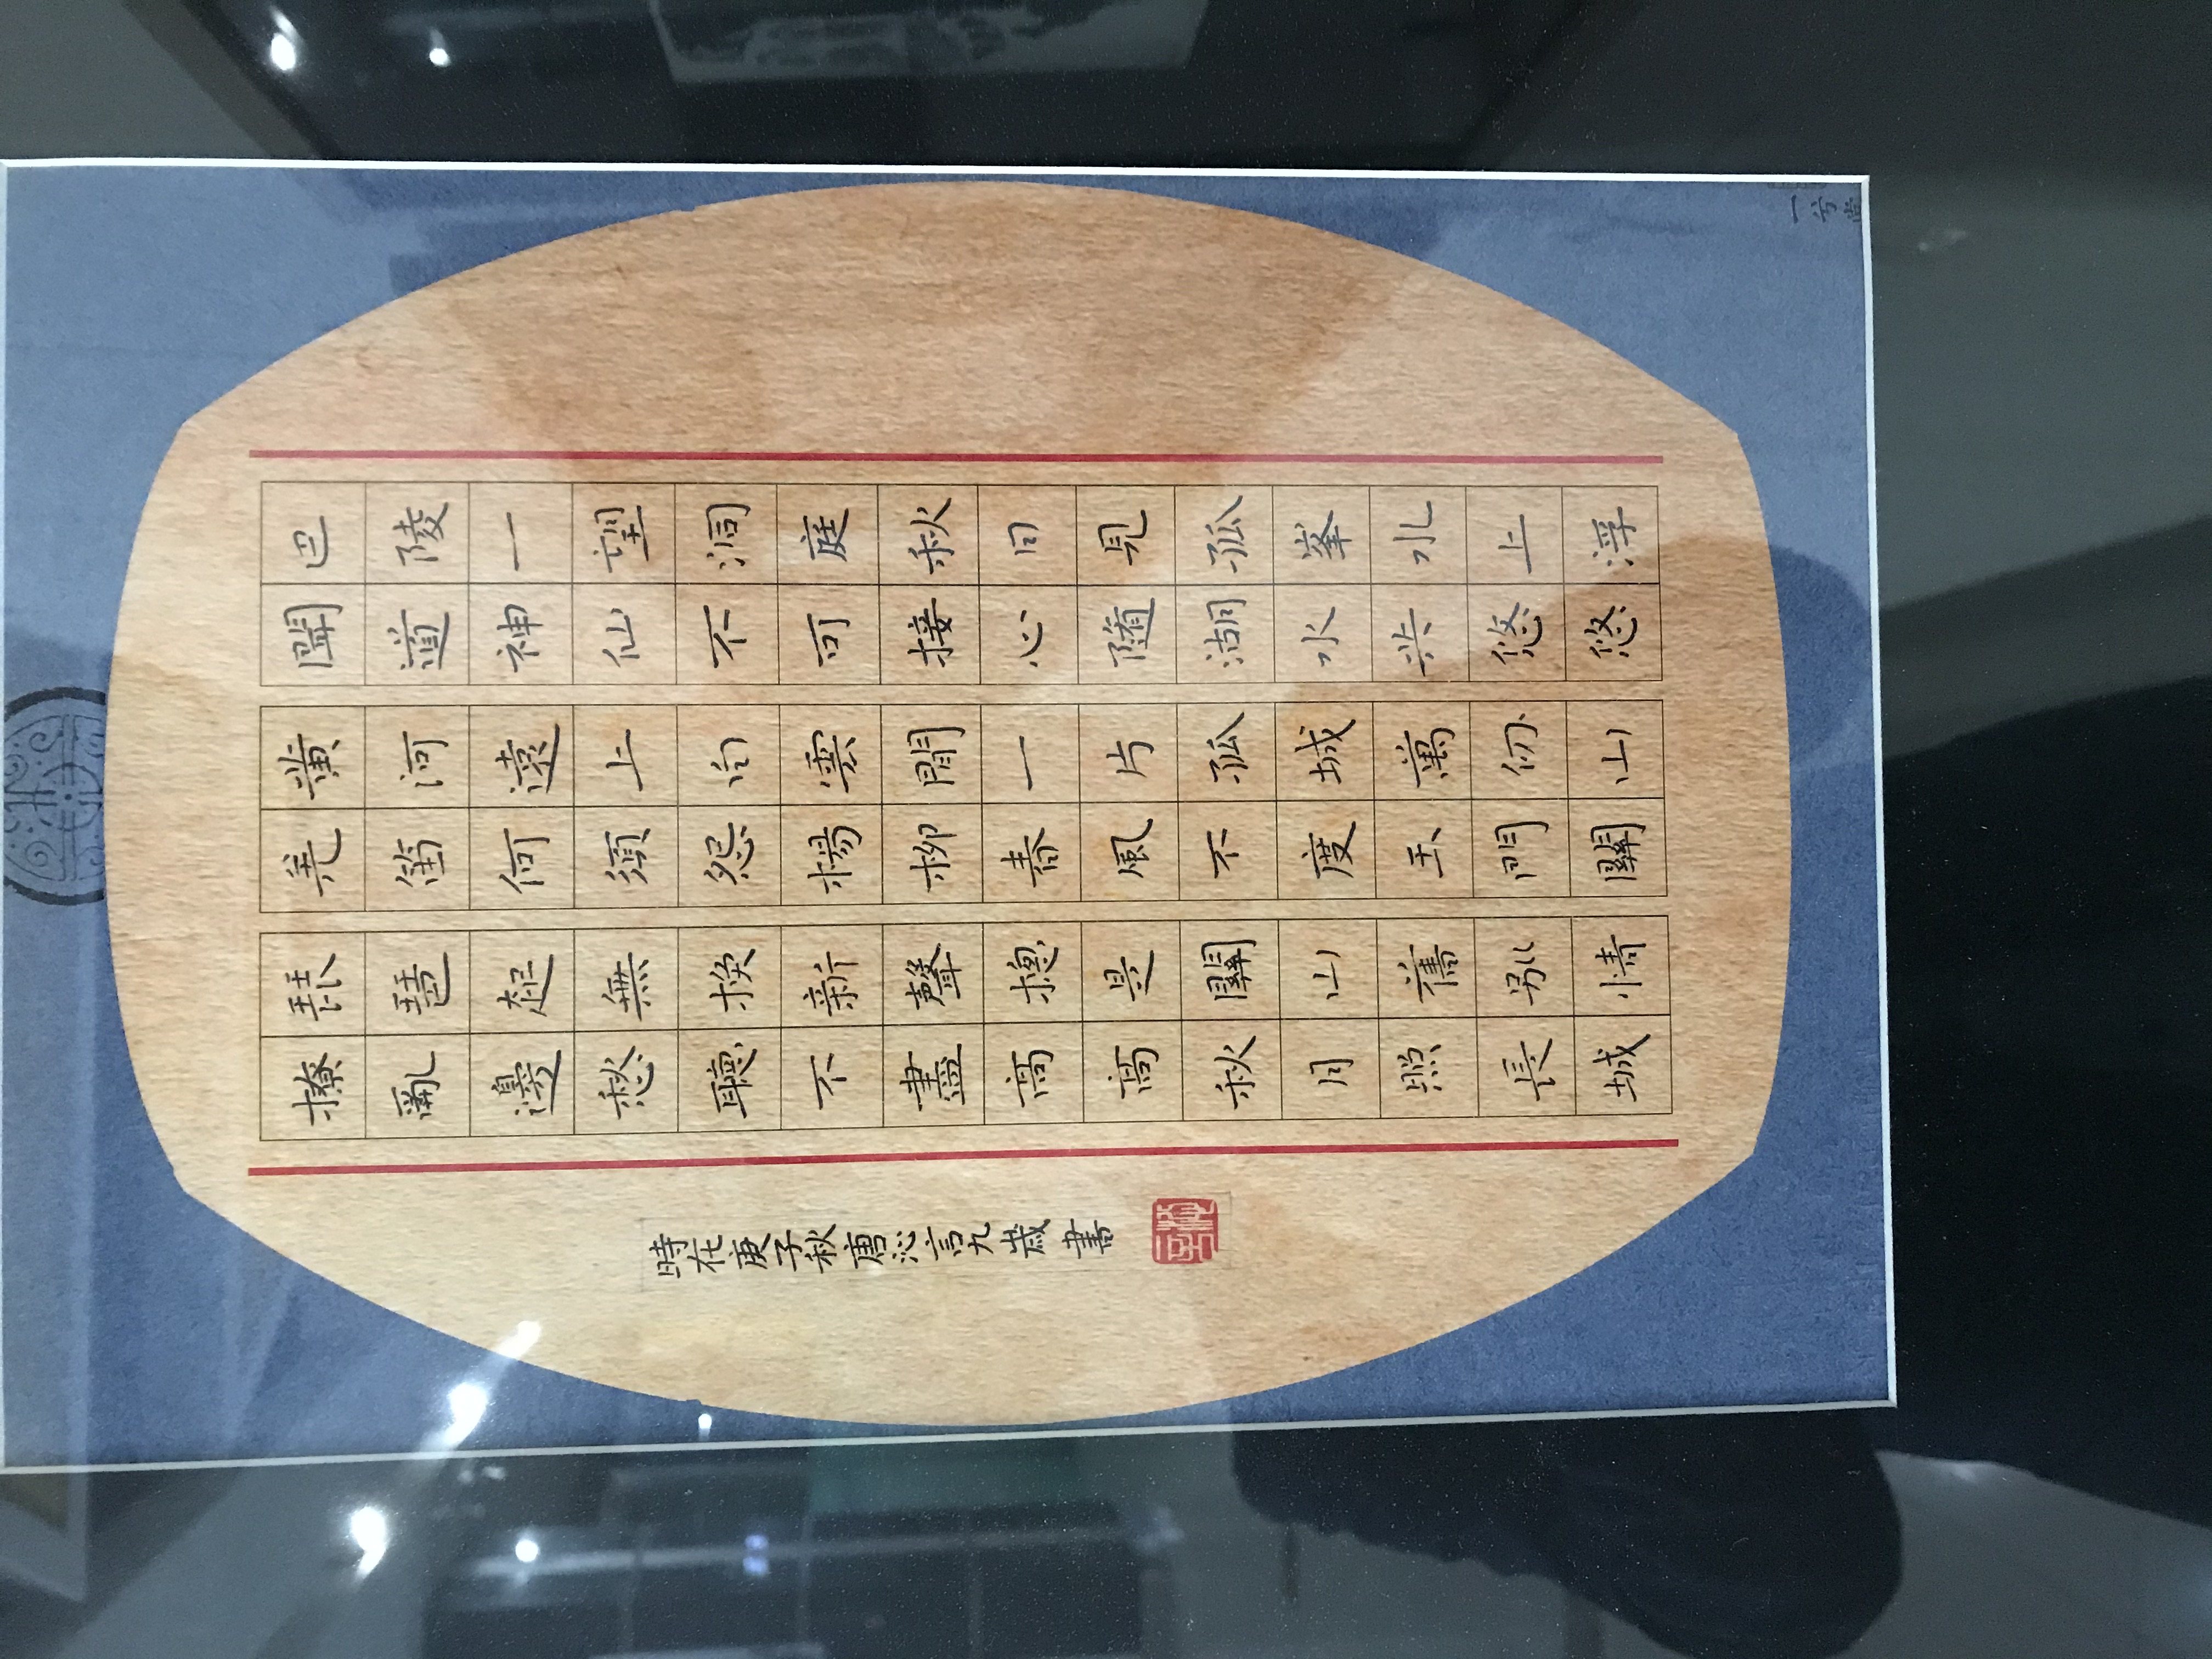 巴陵一望洞庭秋日見孤峯水上浮
聞道神仙不可接心随湖水共悠悠
黄河遠上白雲間一片孤城萬仞山
羌笛何須怨楊柳春風不度玉門關
琵琶起無換新聲揔是關山舊別情
撩亂邊愁聽不盡高高秋月照長城
時在庚子秋唐沁言九歲書